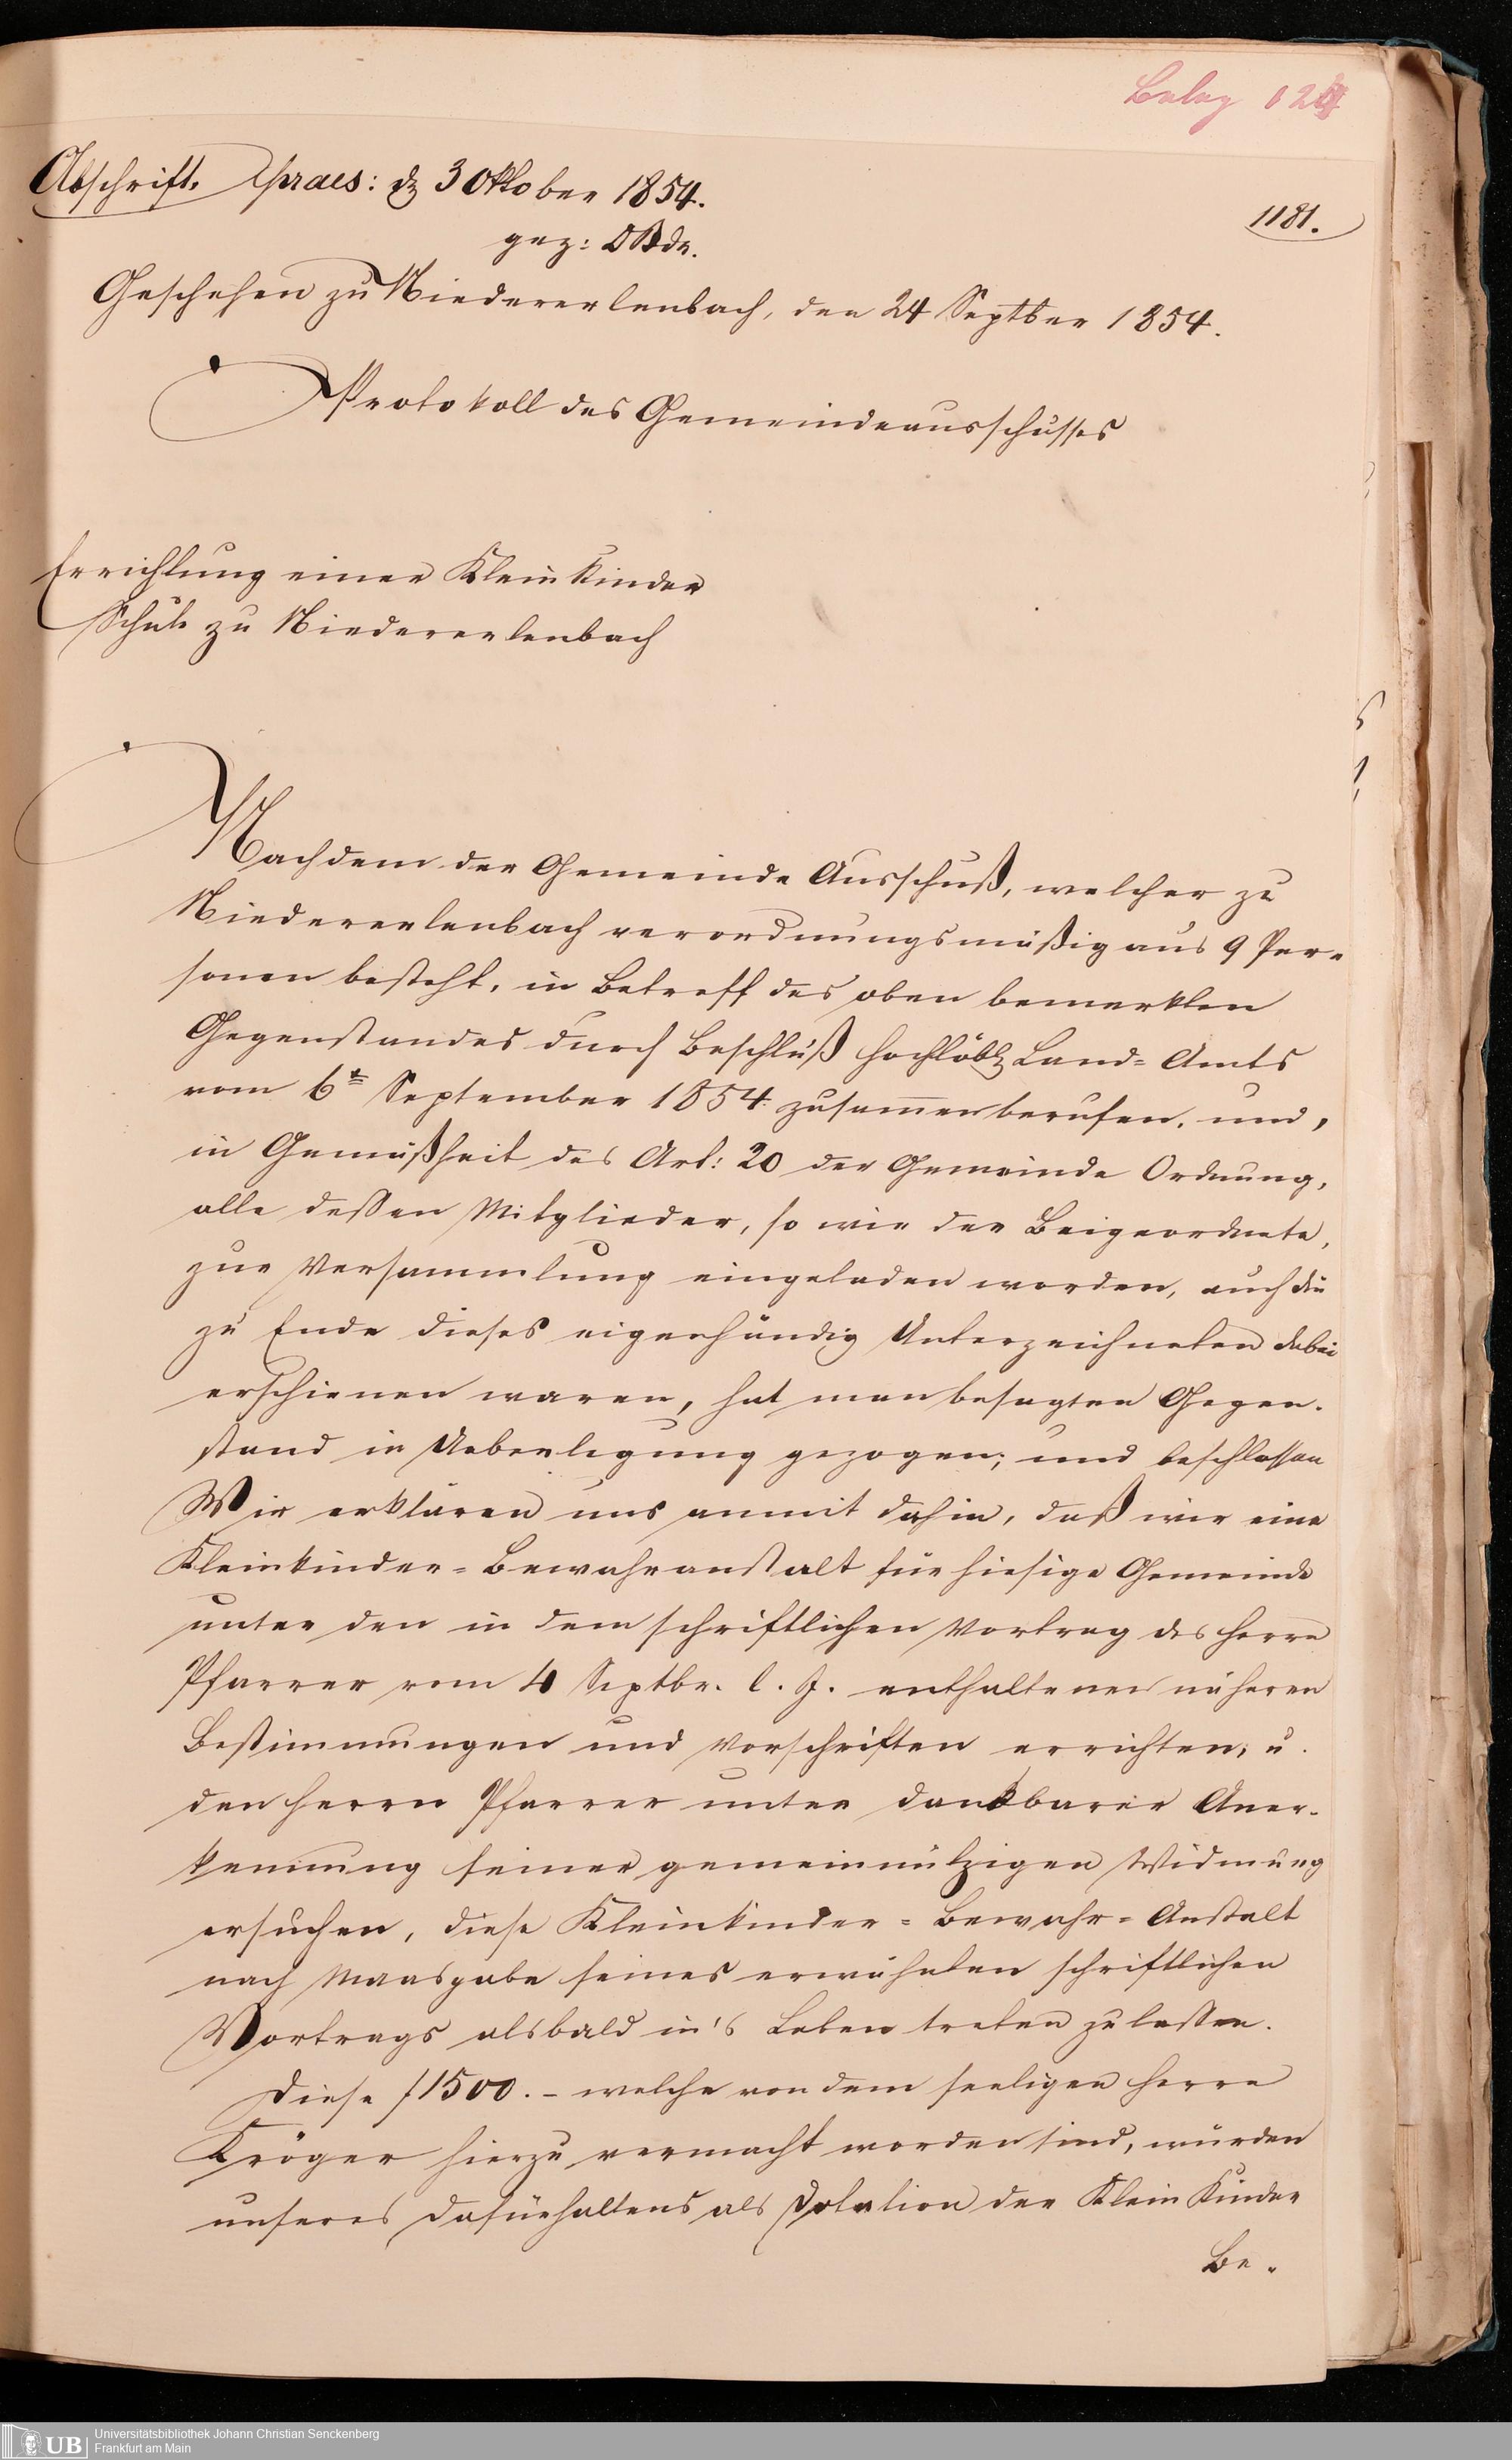 Beleg 120
Abschrift. Praes: d 3 Oktober 1854.
1181.
gez: OBdr.
Geschehen zu Niedererlenbach, den 24 Septber 1854.
Protokoll des Gemeindeausschusses
Errichtung einer Klein Kinder
Schule zu Niedererlenbach
Nachdem der Gemeinde Ausschuß, welcher zu
Niedererlenbach verordnungsmäßig aus 9 Per-
sonen besteht, in Betreff des oben bemerkten
Gegenstandes durch Beschluß hochlöbl Land-Amts
vom 6t September 1854 zusam̅enberufen, und,
in Gemäßheit des Art: 20 der Gemeinde Ordnung,
alle dessen Mitglieder, so wie der Beigeordnete,
zur Versammlung eingeladen worden, auch die
zu Ende dieses eigenhändig Unterzeichneten dabei
erschienen waren, hat man besagten Gegen-
stand in Ueberlegung gezogen; und beschlossen
Wir erklären uns anmit dahin, daß wir eine
Kleinkinder-Bewahranstalt für hiesige Gemeinde
unter den in dem schriftlichen Vortrag des Herrn
Pfarrer vom 4 Septbr. l. J. enthaltenen näheren
Bestimmungen und Vorschriften errichten, u.
den Herrn Pfarrer unter dankbarer Aner-
kennung seiner gemeinnützigen Widmung
ersuchen, diese Kleinkinder-Bewahr-Anstalt
nach Maasgabe seines erwähnten schriftlichen
Vortrags alsbald in's Leben treten zu lassen.
Diese f 1500.- welche von dem seeligen Herrn
Kröger hierzu vermacht worden sind, würden
unseres Dafürhaltens als Dotation der Klein Kinder
Be-
Universitätsbibliothek Johann Christian Senckenberg
Frankfurt am Main
UB